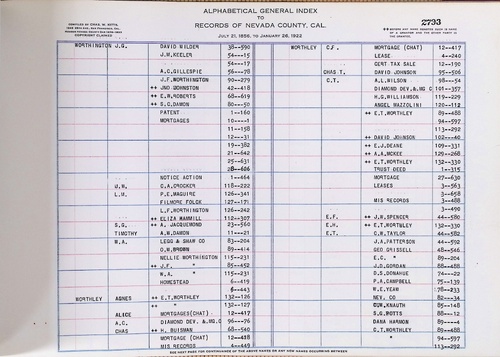 ALPHABETICAL GENERAL INDEX
TO
RECORDS OF NEVADA COUNTY, CAL.
JULY 21, 1856, TO JANUARY 26, 1922
2733
COPYRIGHT CLAIMED
WORTHINGTON J.G. DAVID WILDER 38--590
J.M. KEELER 54---15
54---17
A.C. GILLESPIE 56---78
J.F. WORTHINGTON 90--279
++ JNO JOHNSTON 42--418
++ E.W. ROBERTS 68--619
++ S.C. DAMON 80---50
PATENT 1--160
MORTGAGES 10----1
11--158
12--331
19--382
21--642
25--631
28--626
NOTICE ACTION 1--464
J.W. C.A. CROCKER 118--222
L.H. P.E. MAGUIRE 126--341
FILMORE FOLCK 127--171
L.F. WORTHINGTON 126--242
++ ELIZA MAMMILL 112--307
S.G. ++ A. JACQUEMOND 23--560
TIMOTHY A.W. DAMON 11--221
W.A. LEGG & SHAW CO 83--204
O.W. BROWN 89--414
NELLIE WORTHINGTON 115--231
++ J.F. " 85--452
W.A. " 115--231
HOMESTEAD 6--419
6--443
WORTHLEY AGNES ++ E.T. WORTHLEY 132--126
++ " 132--127
ALICE MORTGAGES (CHAT) 12--417
A.C. DIAMOND DEV. & MG. C 96---76
CHAS ++ H. BUISMAN 68--540
MORTGAGE (CHAT) 12--418
MIS RECORDS 4--449
WORTHLEY C.F. MORTGAGE (CHAT) 12--417
LEASE 4--240
CERT. TAX SALE 12--190
CHAS T. DAVID JOHNSON 95--506
C.T. A.L. WILSON 98---54
DIAMOND DEV. & MG C 101--357
H.G. WILLIAMS 119--229
ANGEL MAZZOLINI 120--112
++ E.T. WORTHLEY 89--488
94--597
113--292
++ DAVID JOHNSON 102--40
++ E.J. DEANE 109--331
++ A.A. MCKEE 129--268
++ E.T. WORTHLEY 132--330
TRUST DEED 1--315
MORTGAGE 27--630
LEASES 3--563
3--658
MIS RECORDS 3--488
3--490
E.F. ++ J.H. SPENCER 44--580
E.H. ++ E.T. WORTHLEY 132--330
E.T. C.W. TAYLOR 44--582
J.A. PATTERSON 44--592
GEO GRISSELL 48--546
E.C. " 89--204
J.D. GORDAN 88--488
D.S. DONAHUE 74---22
P.A. CAMPBELL 75--139
W.E. YEAR 178--233
NEV. CO 82---34
GUW. KNAUTH 85--148
S.G. WATTS 88---12
DANA HARMON 89----4
C.T. WORTHLEY 89--488
" 94--597
113--292
SEE NEXT PAGE FOR CONTINUANCE OF THE ABOVE NAMES OR ANY NEW NAMES OCCURRING BETWEEN